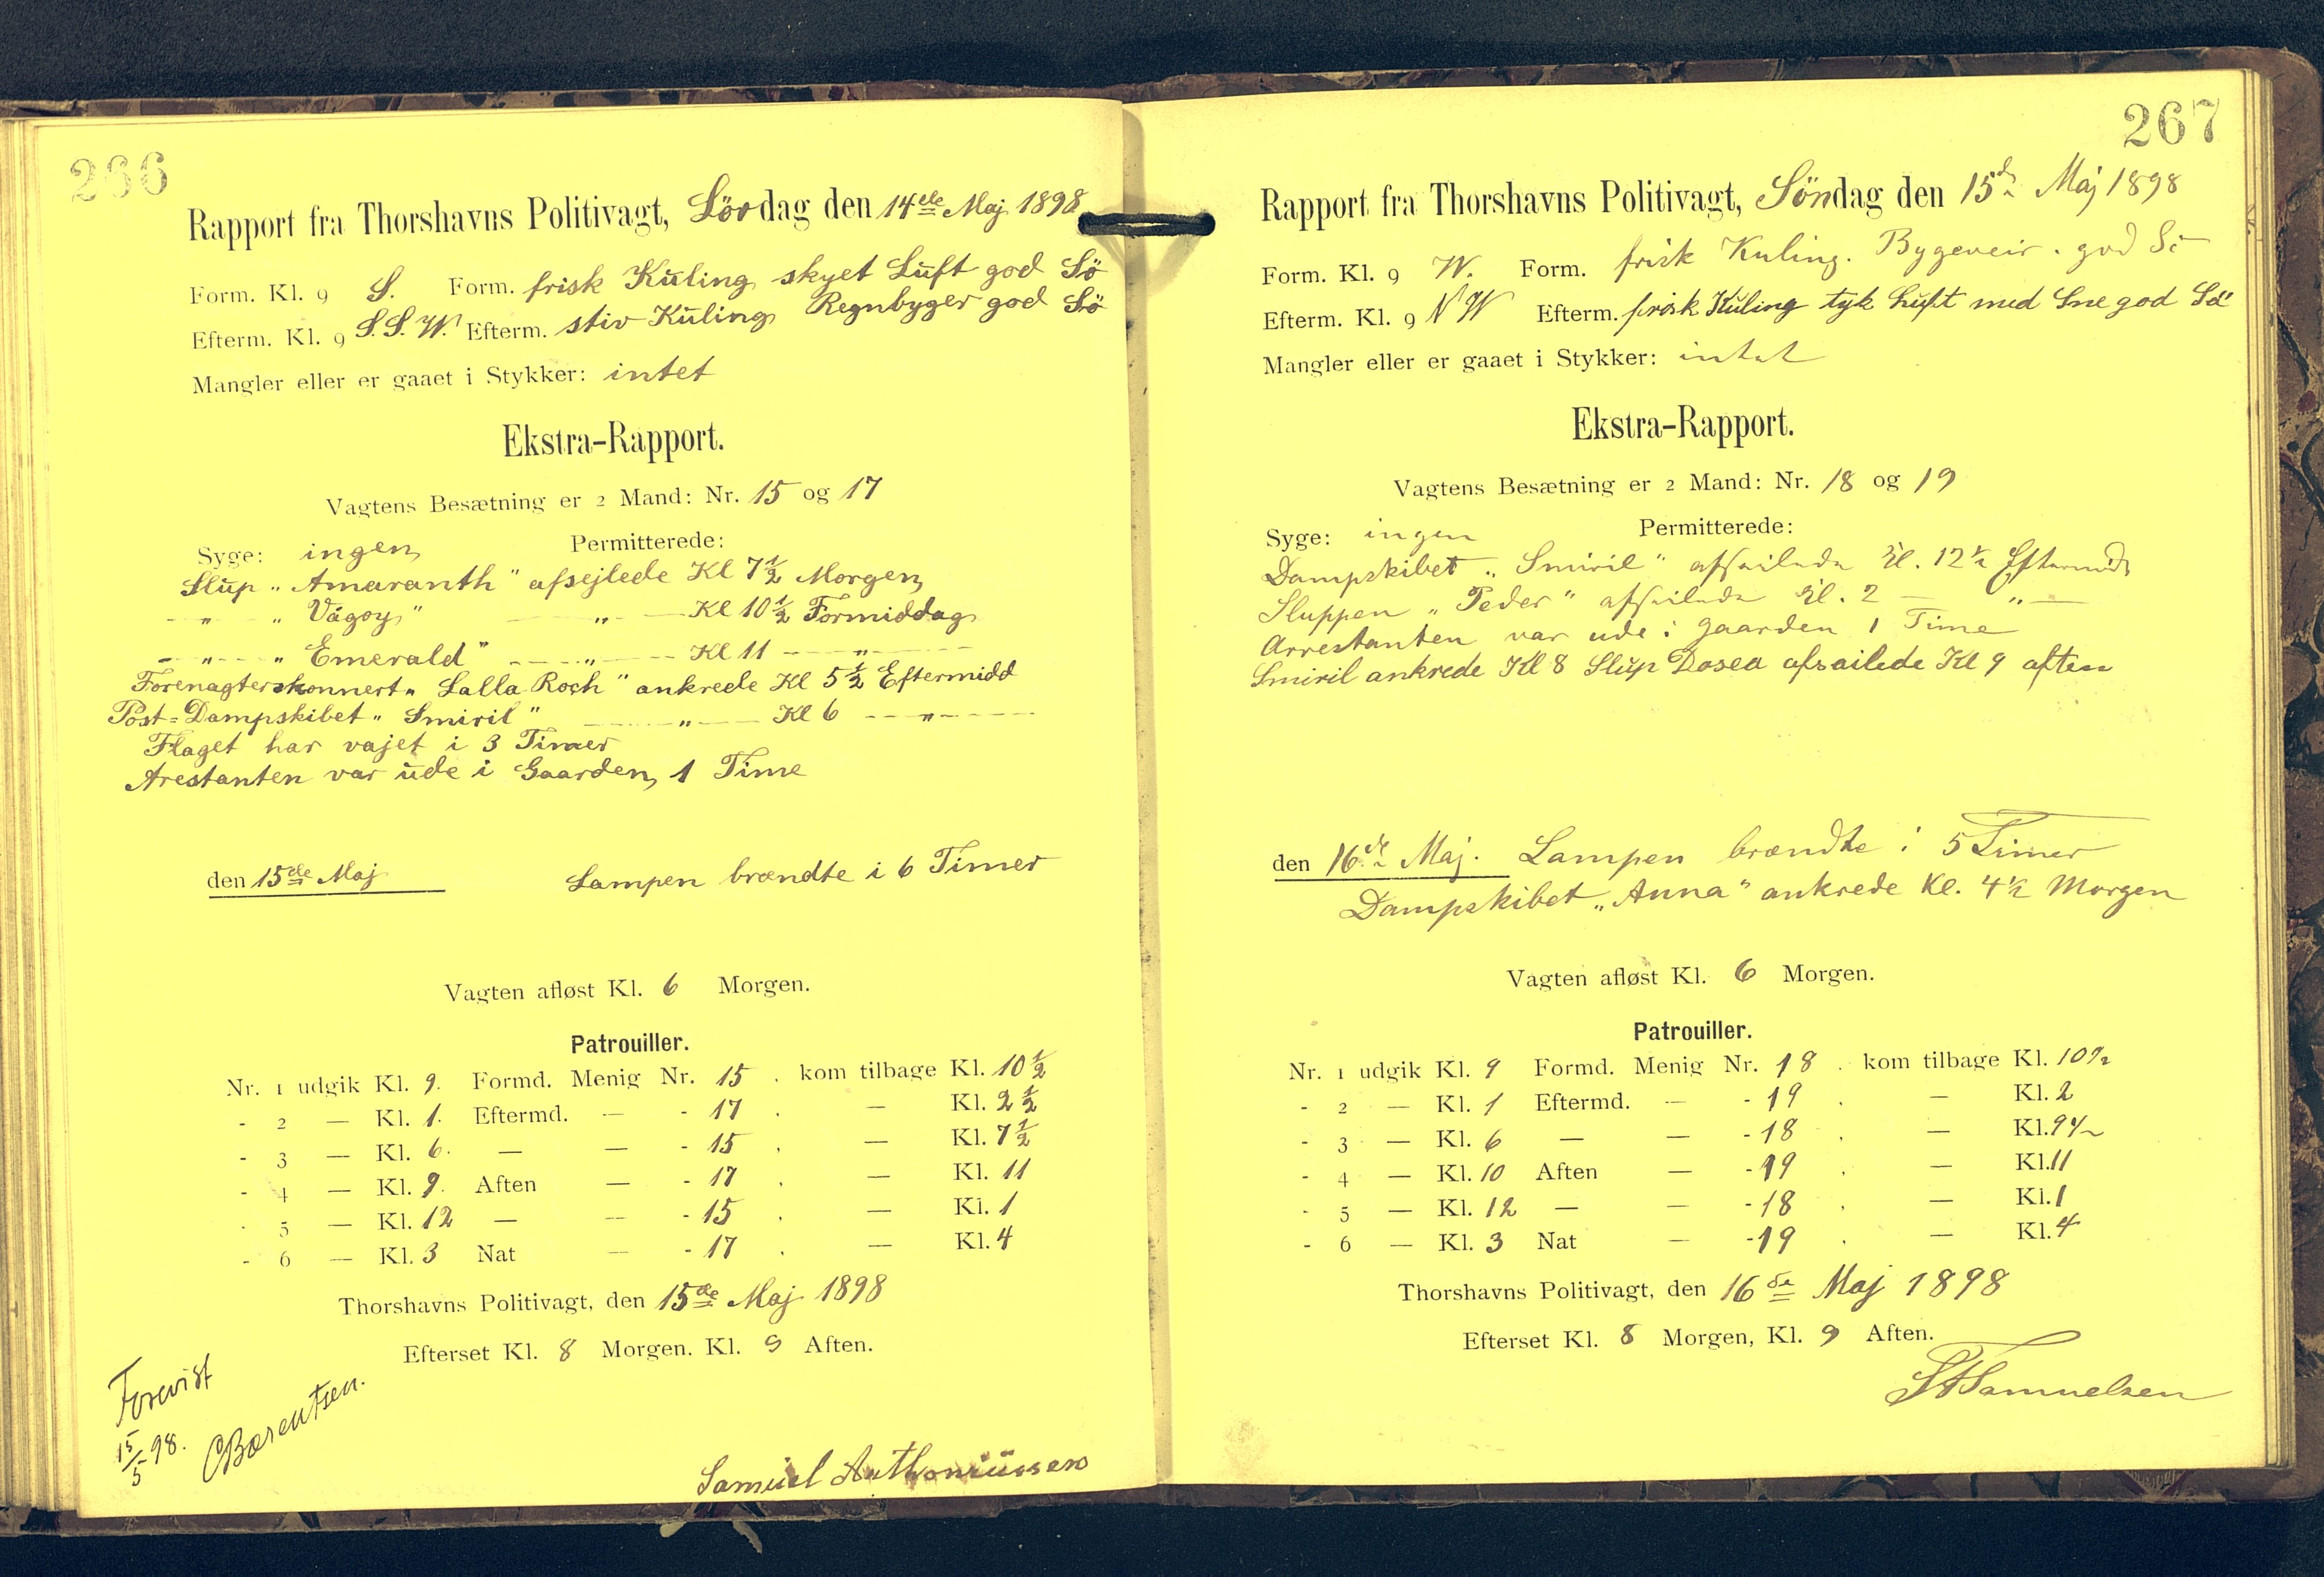 266
Rapport fra Thorshavns Politivagt, Lördag den 14de Maj 1898
Form. Kl. 9 S. Form. frisk Kuling skyet Luft god Sö
Efterm. Kl. 9 S.S.W. Efterm. stiv Kuling Regnbyger god Sö
Mangler eller er gaaet i Stykker: intet
Ekstra-Rapport.
Vagtens Besætning er 2 Mand: Nr. 15 og 17
Syge: ingen Permitterede:
Slup „Amaranth" afsejlede Kl 7½ Morgen
— „ — „Vágoy" — „ — Kl 10½ Formiddag
— „ — „Emerald" — „ — Kl 11 — „ —
Forenagterskonnert „Lalla Roch" ankrede Kl 5½ Eftermidd
Post-Dampskibet „Smiril" — „ — Kl 6 — „ —
Flaget har vajet i 3 Timer
Arestanten var ude i Gaarden 1 Time
den 15de Maj Lampen brændte i 6 Timer
Vagten afløst Kl. 6 Morgen.
Patrouiller.
Nr. 1 udgik Kl. 9. Formd. Menig Nr. 15 . kom tilbage Kl. 10½
- 2 — Kl. 1. Eftermd. — - 17 . — Kl. 2½
- 3 — Kl. 6. — — - 15 . — Kl. 7½
- 4 — Kl. 9. Aften — - 17 . — Kl. 11
- 5 — Kl. 12 — — - 15 . — Kl. 1
- 6 — Kl. 3 Nat — - 17 . — Kl. 4
Thorshavns Politivagt, den 15de Maj 1898
Efterset Kl. 8 Morgen. Kl. 9 Aften.
Forevist
15/5 98.
CBærentsen.
Samuel Anthoniussen
267
Rapport fra Thorshavns Politivagt, Söndag den 15de Maj 1898
Form. Kl. 9 W. Form. frisk Kuling. Bygeveir. god Sö
Efterm. Kl. 9 NW Efterm. frisk Kuling tyk Luft med Sne god Sö
Mangler eller er gaaet i Stykker: intet
Ekstra-Rapport.
Vagtens Besætning er 2 Mand: Nr. 18 og 19
Syge: ingen Permitterede:
Dampskibet „Smiril" afseilede Kl. 12½ Eftermid
Sluppen „Peder" afseilede Kl. 2 — „ —
Arrestanten var ude i Gaarden 1 Time
Smiril ankrede Kl 8 Slup Dosea afsailede Kl 9 aften
den 16de Maj. Lampen brændte i 5 Timer
Dampskibet „Anna" ankrede Kl. 4½ Morgen
Vagten afløst Kl. 6 Morgen.
Patrouiller.
Nr. 1 udgik Kl. 9 Formd. Menig Nr. 18 . kom tilbage Kl. 10½
- 2 — Kl. 1 Eftermd. — - 19 . — Kl. 2
- 3 — Kl. 6 — — - 18 . — Kl. 9½
- 4 — Kl. 10 Aften — - 19 . — Kl. 11
- 5 — Kl. 12 — — - 18 . — Kl. 1
- 6 — Kl. 3 Nat — - 19 . — Kl. 4
Thorshavns Politivagt, den 16de Maj 1898
Efterset Kl. 8 Morgen, Kl. 9 Aften.
Samuelsen